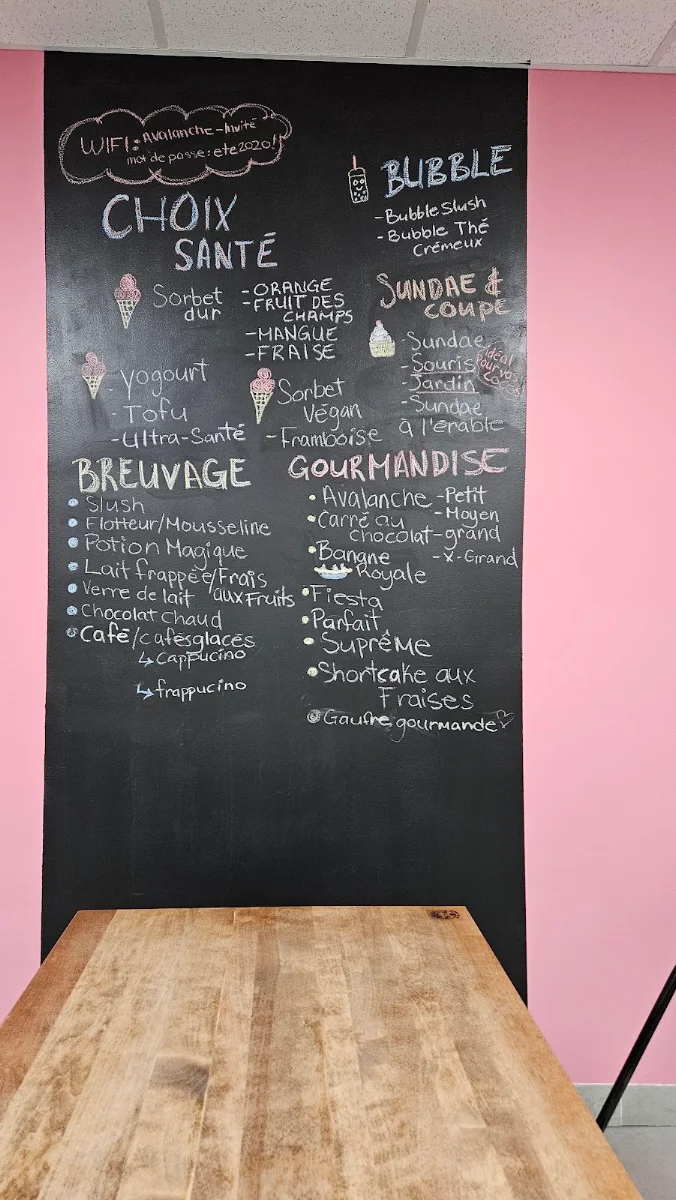 WIFI: Avalanche-Invité
mot de passe: ete2020!!
CHOIX
SANTÉ
Sorbet
dur
- ORANGE
- FRUIT DES
CHAMPS
- MANGUE
- FRAISE
- Yogourt
- Tofu
- Ultra-Santé
Sorbet
Végan
- Framboise
BUBBLE
- Bubble Slush
- Bubble Thé
Crémeux
SUNDAE &
COUPE
- Sundae
- Souris
- Jardin
- Sundae
à l'érable
idéal
pour vos
BREUVAGE
Slush
Flotteur/Mousseline
Potion Magique
Lait frappée/Frais
aux Fruits
Verre de lait
Chocolat chaud
Café/cafésglacés
↳ Cappucino
↳ frappucino
GOURMANDISE
Avalanche - Petit
- Moyen
Carré au
chocolat - grand
- X-Grand
Bangne
Royale
Fiesta
Parfait
Suprême
Shortcake aux
Fraises
Gaufre gourmande